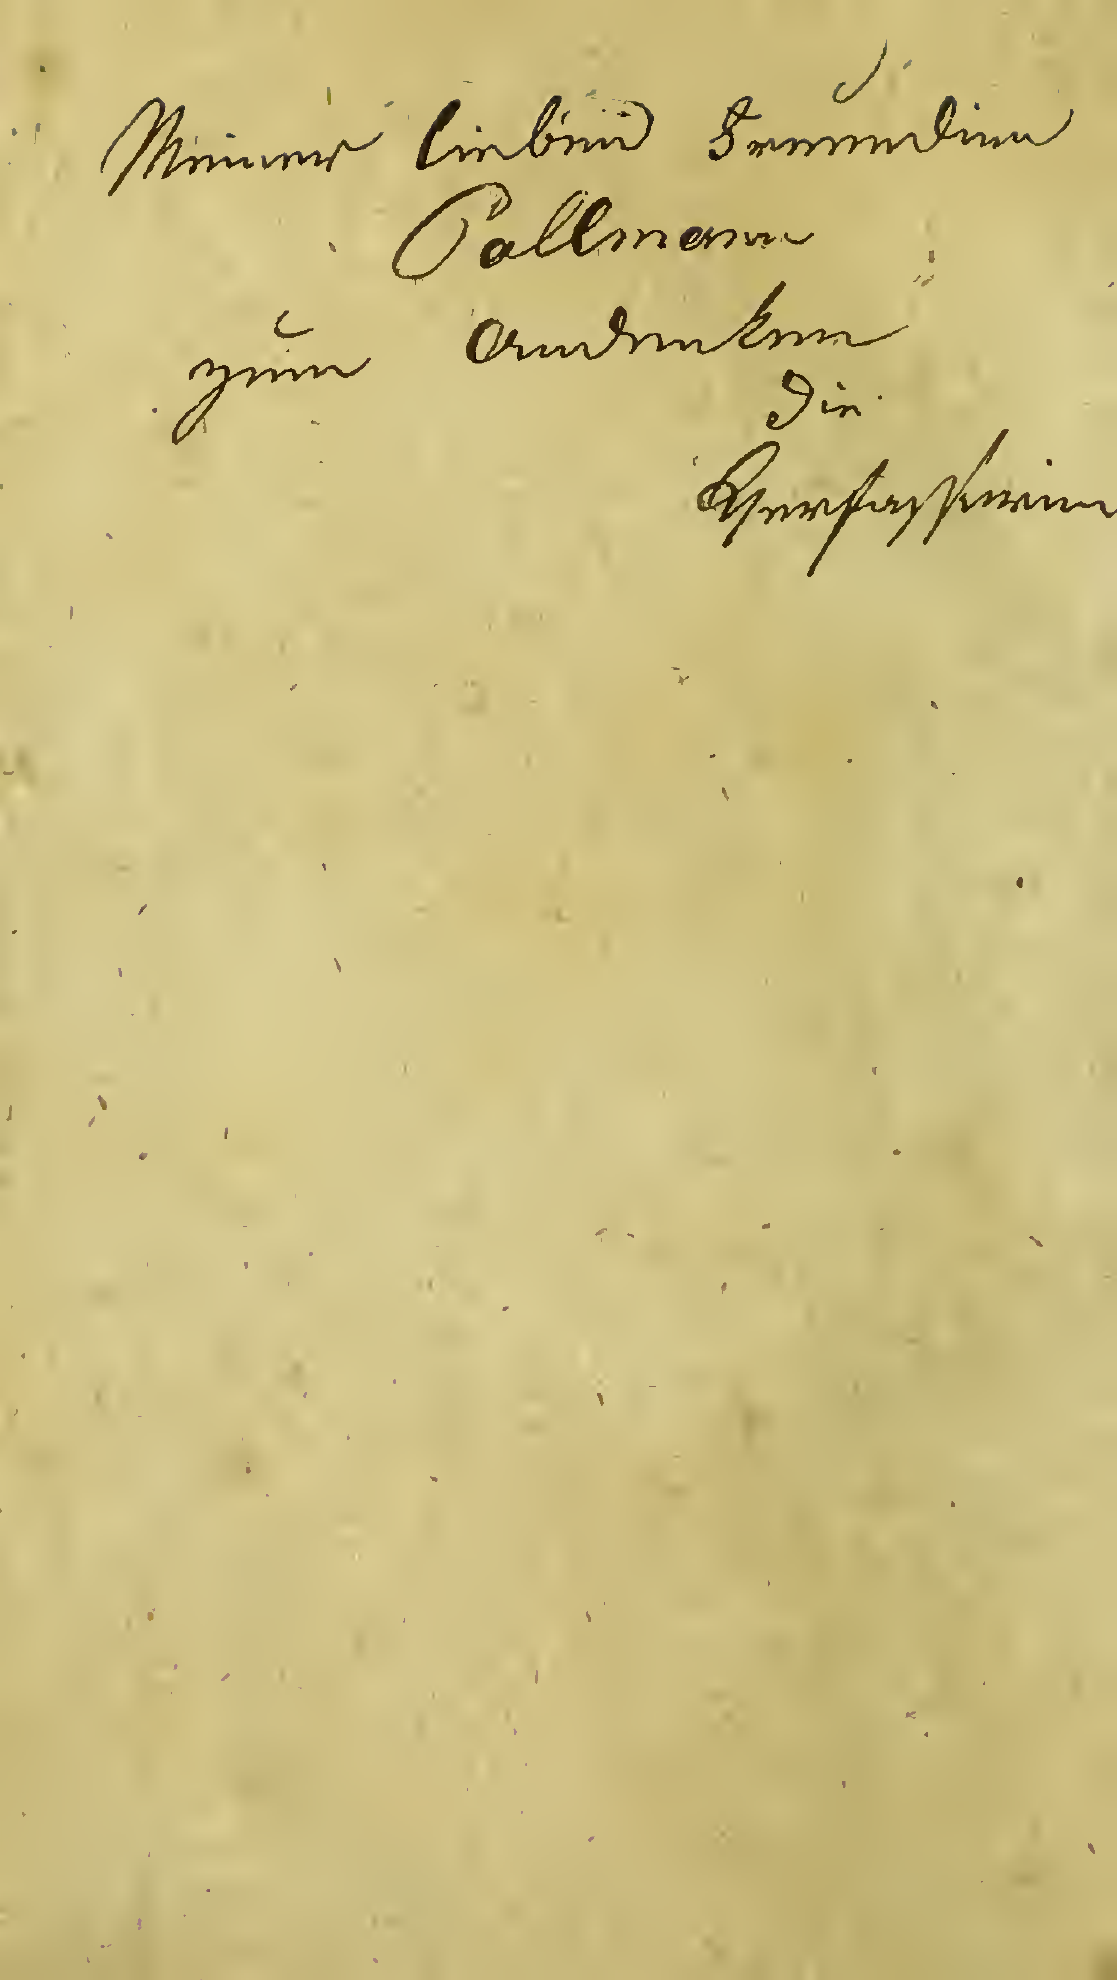 Meiner lieben Freundin
Pallmann
zum Andenken
die
Verfasserin